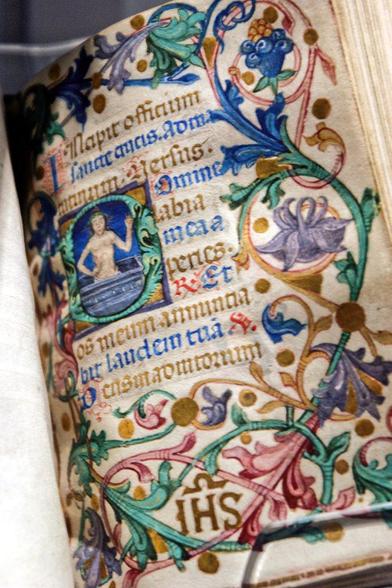 Incipit officium
sancte crucis. Ad ma
tutinum. Versus.
Domine
labia
mea a
peries.
R. Et
os meum annuntia
bit laudem tuā. V.
Deus in adiutorium
IHS